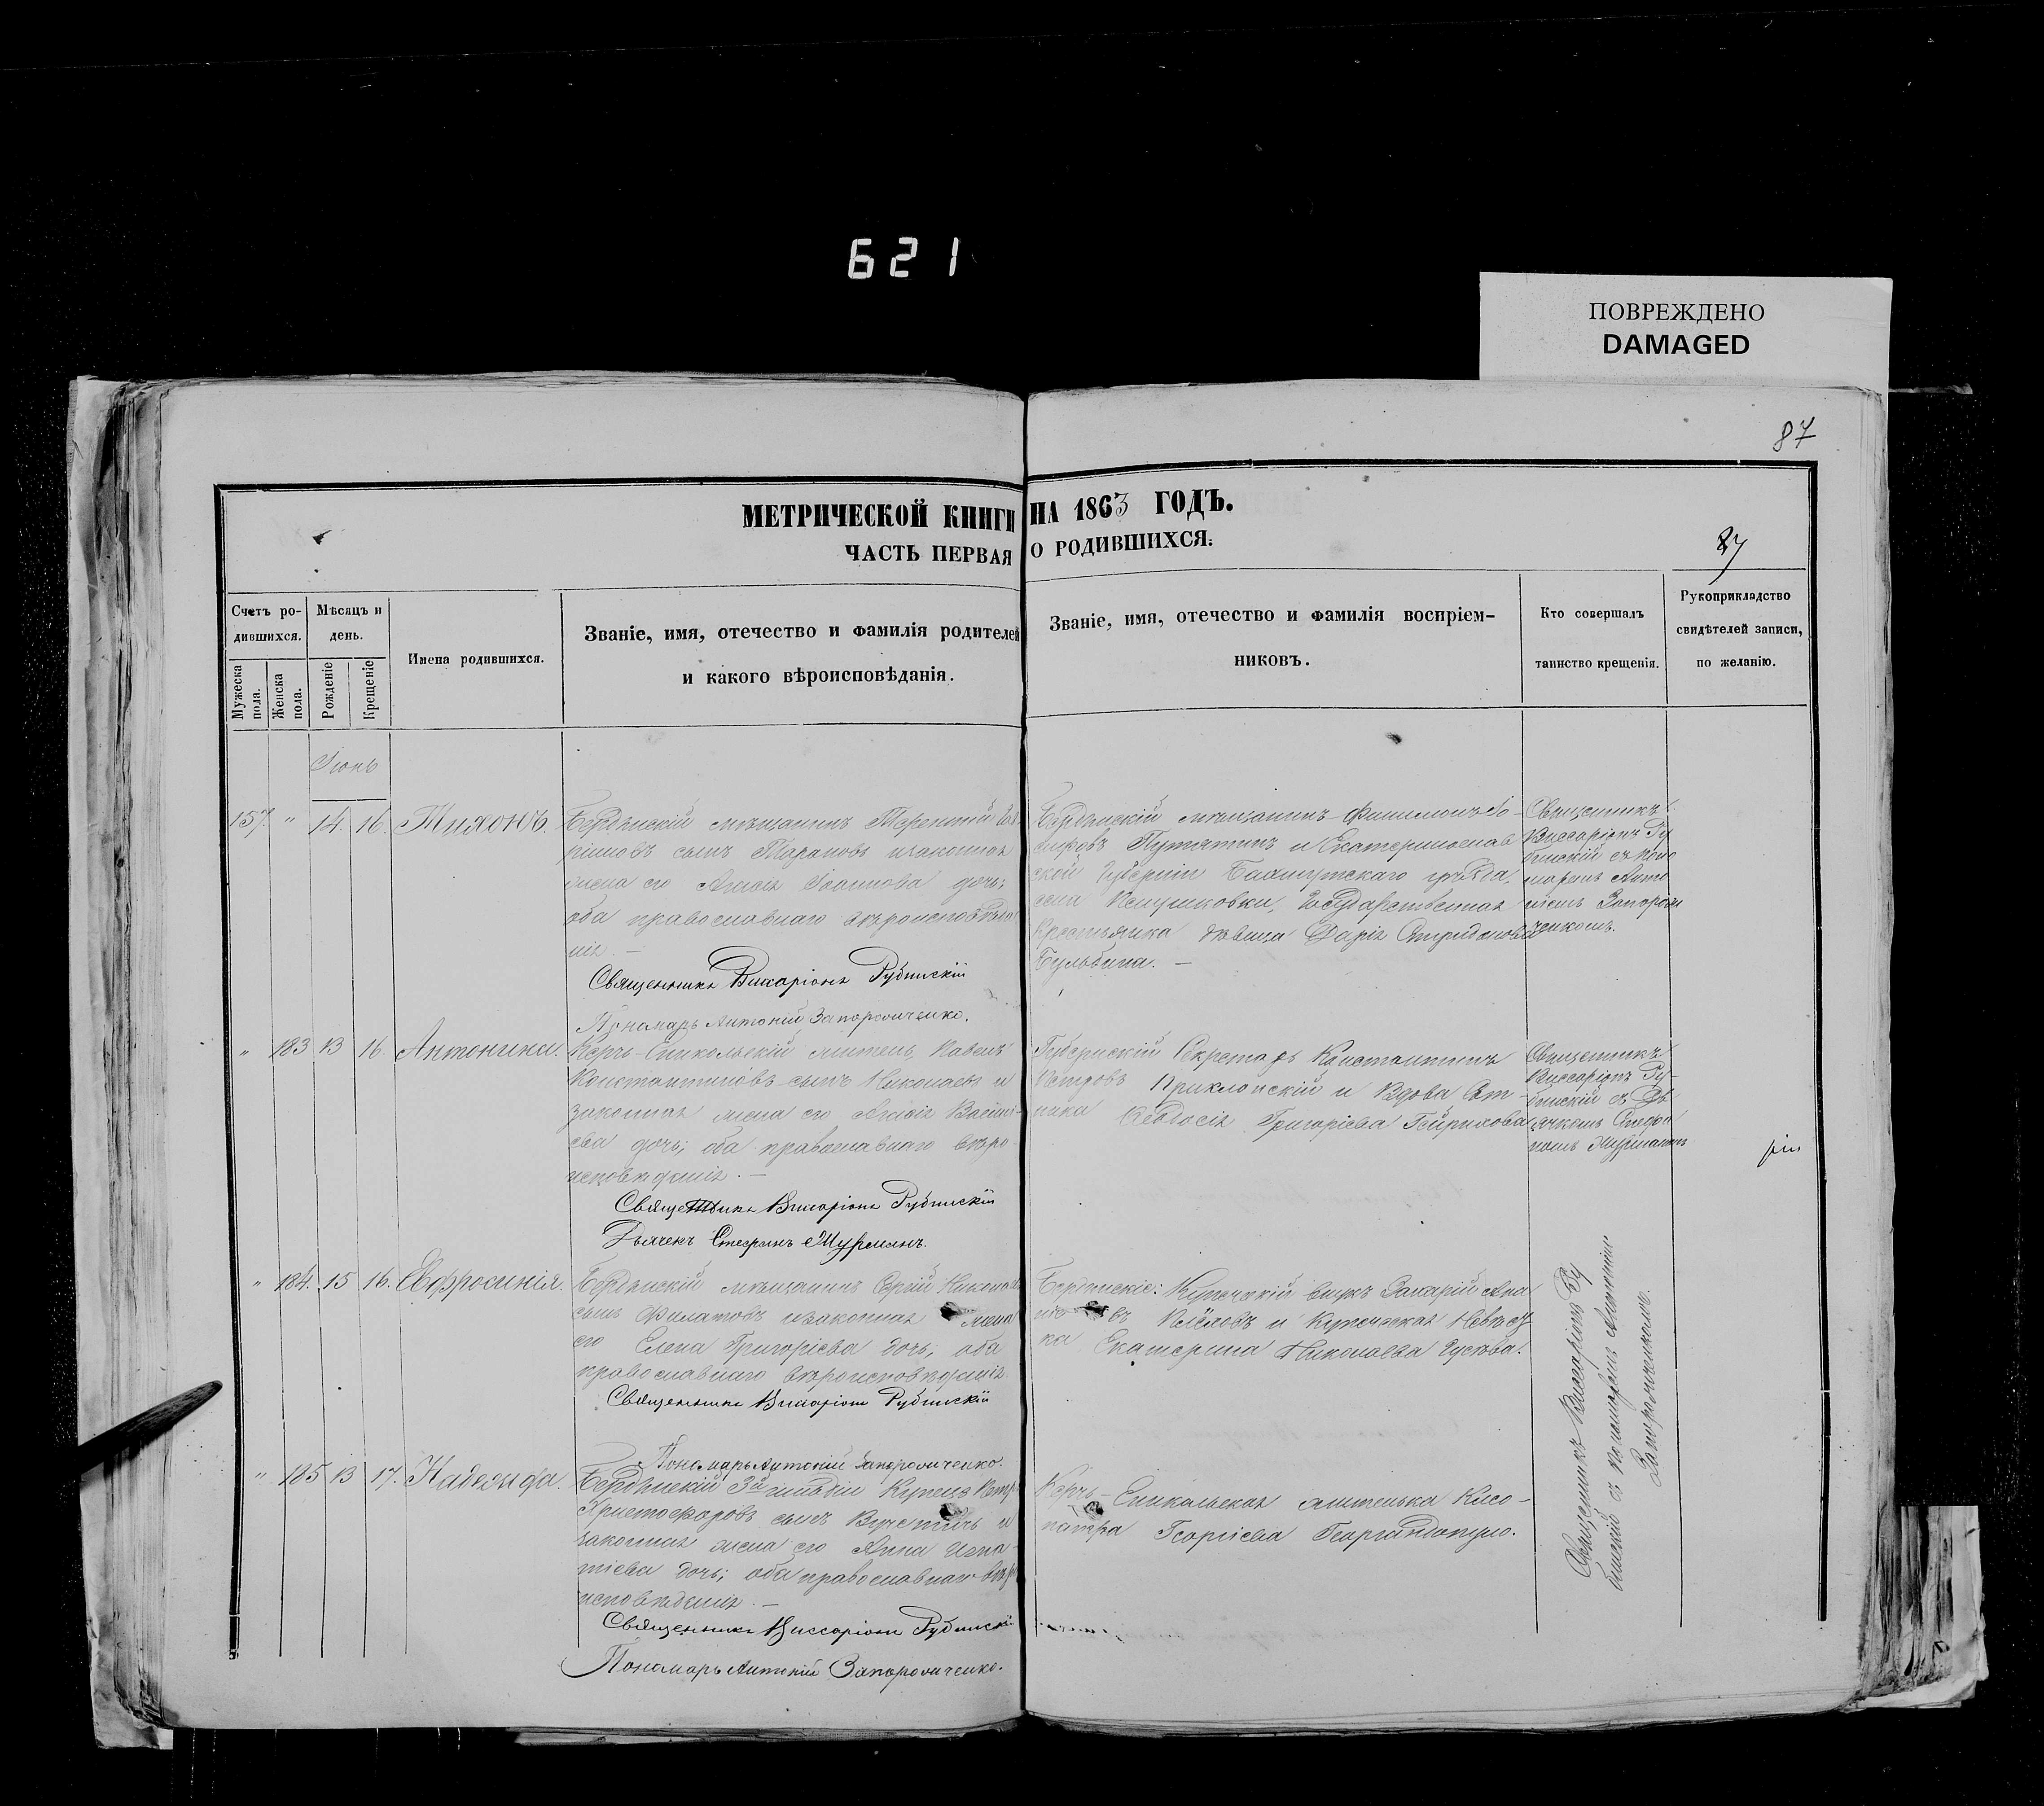 621
ПОВРЕЖДЕНО
DAMAGED
87
МЕТРИЧЕСКОЙ КНИГИ НА 1863 ГОДЪ.
ЧАСТЬ ПЕРВАЯ О РОДИВШИХСЯ.
87
Счетъ ро-
дившихся.
Мужеска пола.
Женска пола.
Мѣсяцъ и
день.
Рожденіе
Крещеніе
Имена родившихся.
Званіе, имя, отечество и фамилія родителей
и какого вѣроисповѣданія.
Званіе, имя, отечество и фамилія воспріем-
никовъ.
Кто совершалъ
таинство крещенія.
Рукоприкладство
свидѣтелей записи,
по желанію.
Іюнь
157. " 14. 16. Тихонъ.
Бердянскій мѣщанинъ Терентій
сынъ Тарановъ и законная
жена его Агафія Іоаннова дочь;
оба православнаго вѣроисповѣда
нія. —
Священникъ Виссаріонъ Рубинскій
Пономарь Антоній Запорожченко.
Бердянскій мѣщанинъ Филимонъ
Путятинъ и Екатеринослав
ской Губерніи Бахмутскаго уѣзда,
села Государственная
Крестьянка дѣвица Дарія Спиридонова
Бульбина. —
Священникъ
Виссаріонъ Ру
бинскій съ поно
маремъ Анто
ніемъ Запорож
ченкомъ.
" 183 13 16. Антонина.
Керчь-Еникольскій житель Павелъ
Константиновъ сынъ Николаевъ и
законная жена его Агафія Василь-
ева дочь; оба православнаго вѣро-
исповѣданія. —
Священникъ Виссаріонъ Рубинскій
Дьячекъ Стефанъ Мурманъ.
Губернскій Секретарь Константинъ
Петровъ Приклонскій и Вдова
Феодосія Григоріева
Священникъ
Виссаріонъ Ру-
бинскій съ Дь
ячкомъ Стефа
номъ
" 184. 15 16. Евфросинія.
Бердянскій мѣщанинъ Сергій
сынъ Филатовъ и законная жена
его Елена Григоріева дочь; оба
православнаго вѣроисповѣданія
Священникъ Виссаріонъ Рубинскій
Пономарь Антоній Запорожченко.
Бердянскіе: Купеческій внукъ Захарій
и Купеческая Невѣст
ка Екатерина Николаева Гусева.
" 185 13 17. Надежда.
Бердянскій 3й гильдіи Купецъ Петръ
Христофоровъ сынъ Вучетичъ и
законная жена его Анна Игна-
тіева дочь; оба православнаго вѣро
исповѣданія. —
Священникъ Виссаріонъ Рубинскій
Пономарь Антоній Запорожченко.
Керчь-Еникальская жителька Клео-
патра Георгіева Георгандопуло.
Священникъ Виссаріонъ Ру
бинскій съ пономаремъ Антоніемъ
Запорожченкомъ.